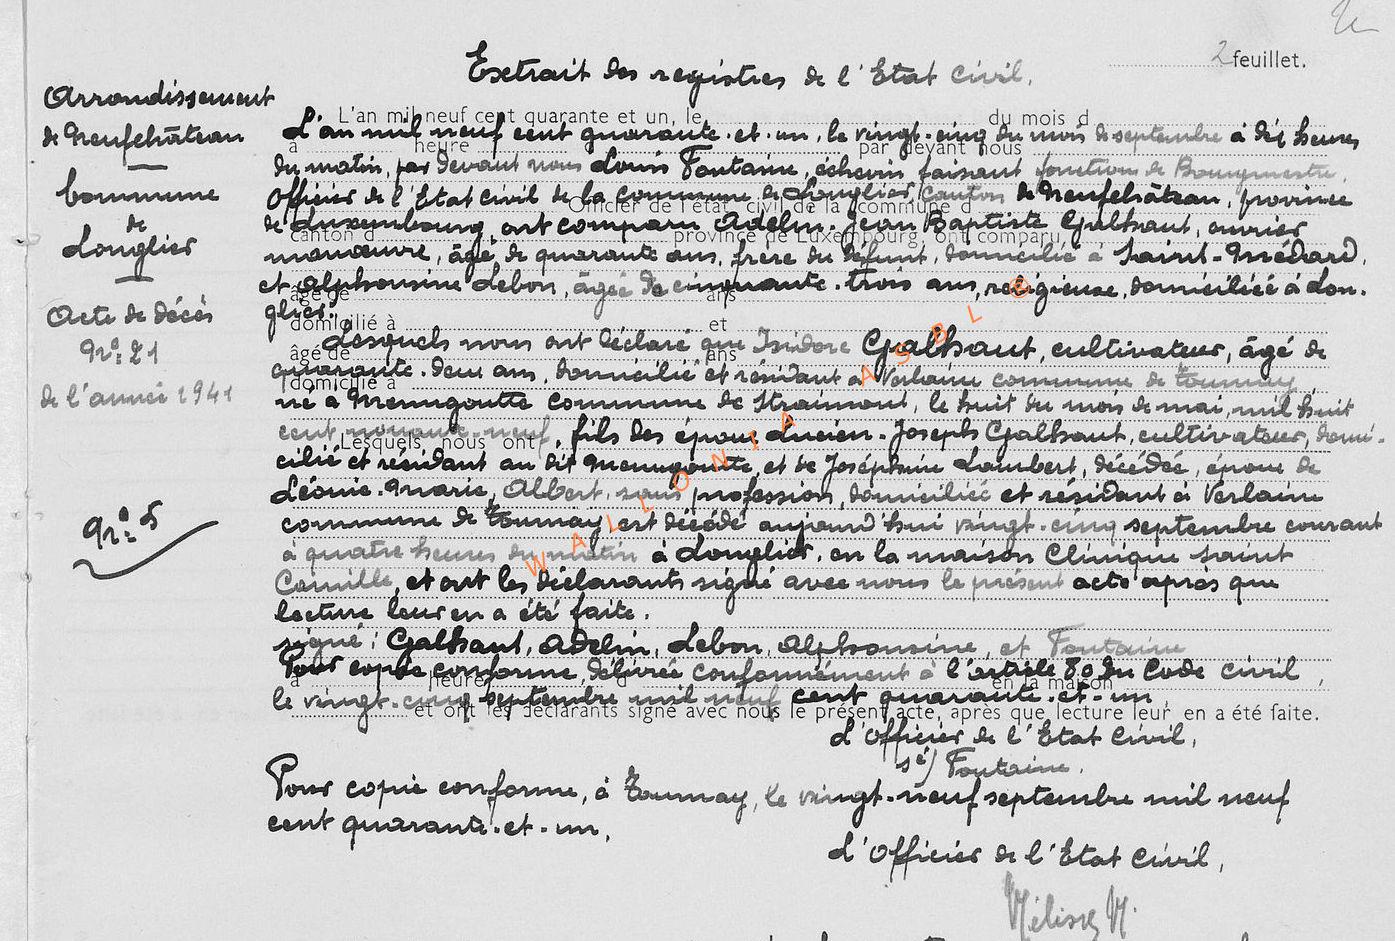 2 feuillet.
Extrait des registres de l'Etat Civil.
Arrondissement
de Neufchâteau
Commune
de
Longlier
Acte de décès
N° 21
de l'année 1941
N° 5
L'an mil neuf cent quarante et un, le du mois d
L'an mil neuf cent quarante-et-un, le vingt-cinq du mois de septembre à dix heures
à heure par devant nous
du matin, par devant nous Louis Fontaine, échevin faisant fonction de Bourgmestre,
Officier de l'Etat Civil de la commune de Longlier, canton de Neufchâteau, province
Officier de l'état civil de la commune d
de Luxembourg, ont comparu Adelin-Jean Baptiste Galhaut, ouvrier
canton d province de Luxembourg, ont comparu,
manœuvre, âgé de quarante ans, frère du défunt, domicilié à Saint-Médard,
et Alphonsine Lebon, âgée de cinquante-trois ans, religieuse, domiciliée à Lon-
âgé de ans
glier.
domicilié à et
Lesquels nous ont déclaré que Isidore Galhaut, cultivateur, âgé de
âgé de ans
quarante-deux ans, domicilié et résidant à Verlaine commune de Tournay
domicilié à
né à Menugoutte commune de Straimont, le huit du mois de mai, mil huit
cent nonante-neuf, fils des époux Lucien-Joseph Galhaut, cultivateur, domi-
Lesquels nous ont
cilié et résidant au dit Menugoutte, et de Joséphine Lambert, décédée, époux de
Léonie-Marie, Albert, sans profession, domiciliée et résidant à Verlaine
commune de Tournay, est décédé aujourd'hui vingt-cinq septembre courant
à quatre heures du matin à Longlier, en la maison Clinique Saint
Camille, et ont les déclarants signé avec nous le présent acte après que
lecture leur en a été faite.
signé: Galhaut, Adelin, Lebon, Alphonsine, et Fontaine
Pour copie conforme, délivrée conformément à l'article 80 du Code civil,
à heure d en la maison
le vingt-cinq septembre mil neuf cent quarante-et-un,
et ont les déclarants signé avec nous le présent acte, après que lecture leur en a été faite.
L'Officier de l'Etat Civil,
sé) Fontaine.
Pour copie conforme, à Tournay, le vingt-neuf septembre mil neuf
cent quarante-et-un.
L'Officier de l'Etat Civil,
WALLONIA ASBL ©